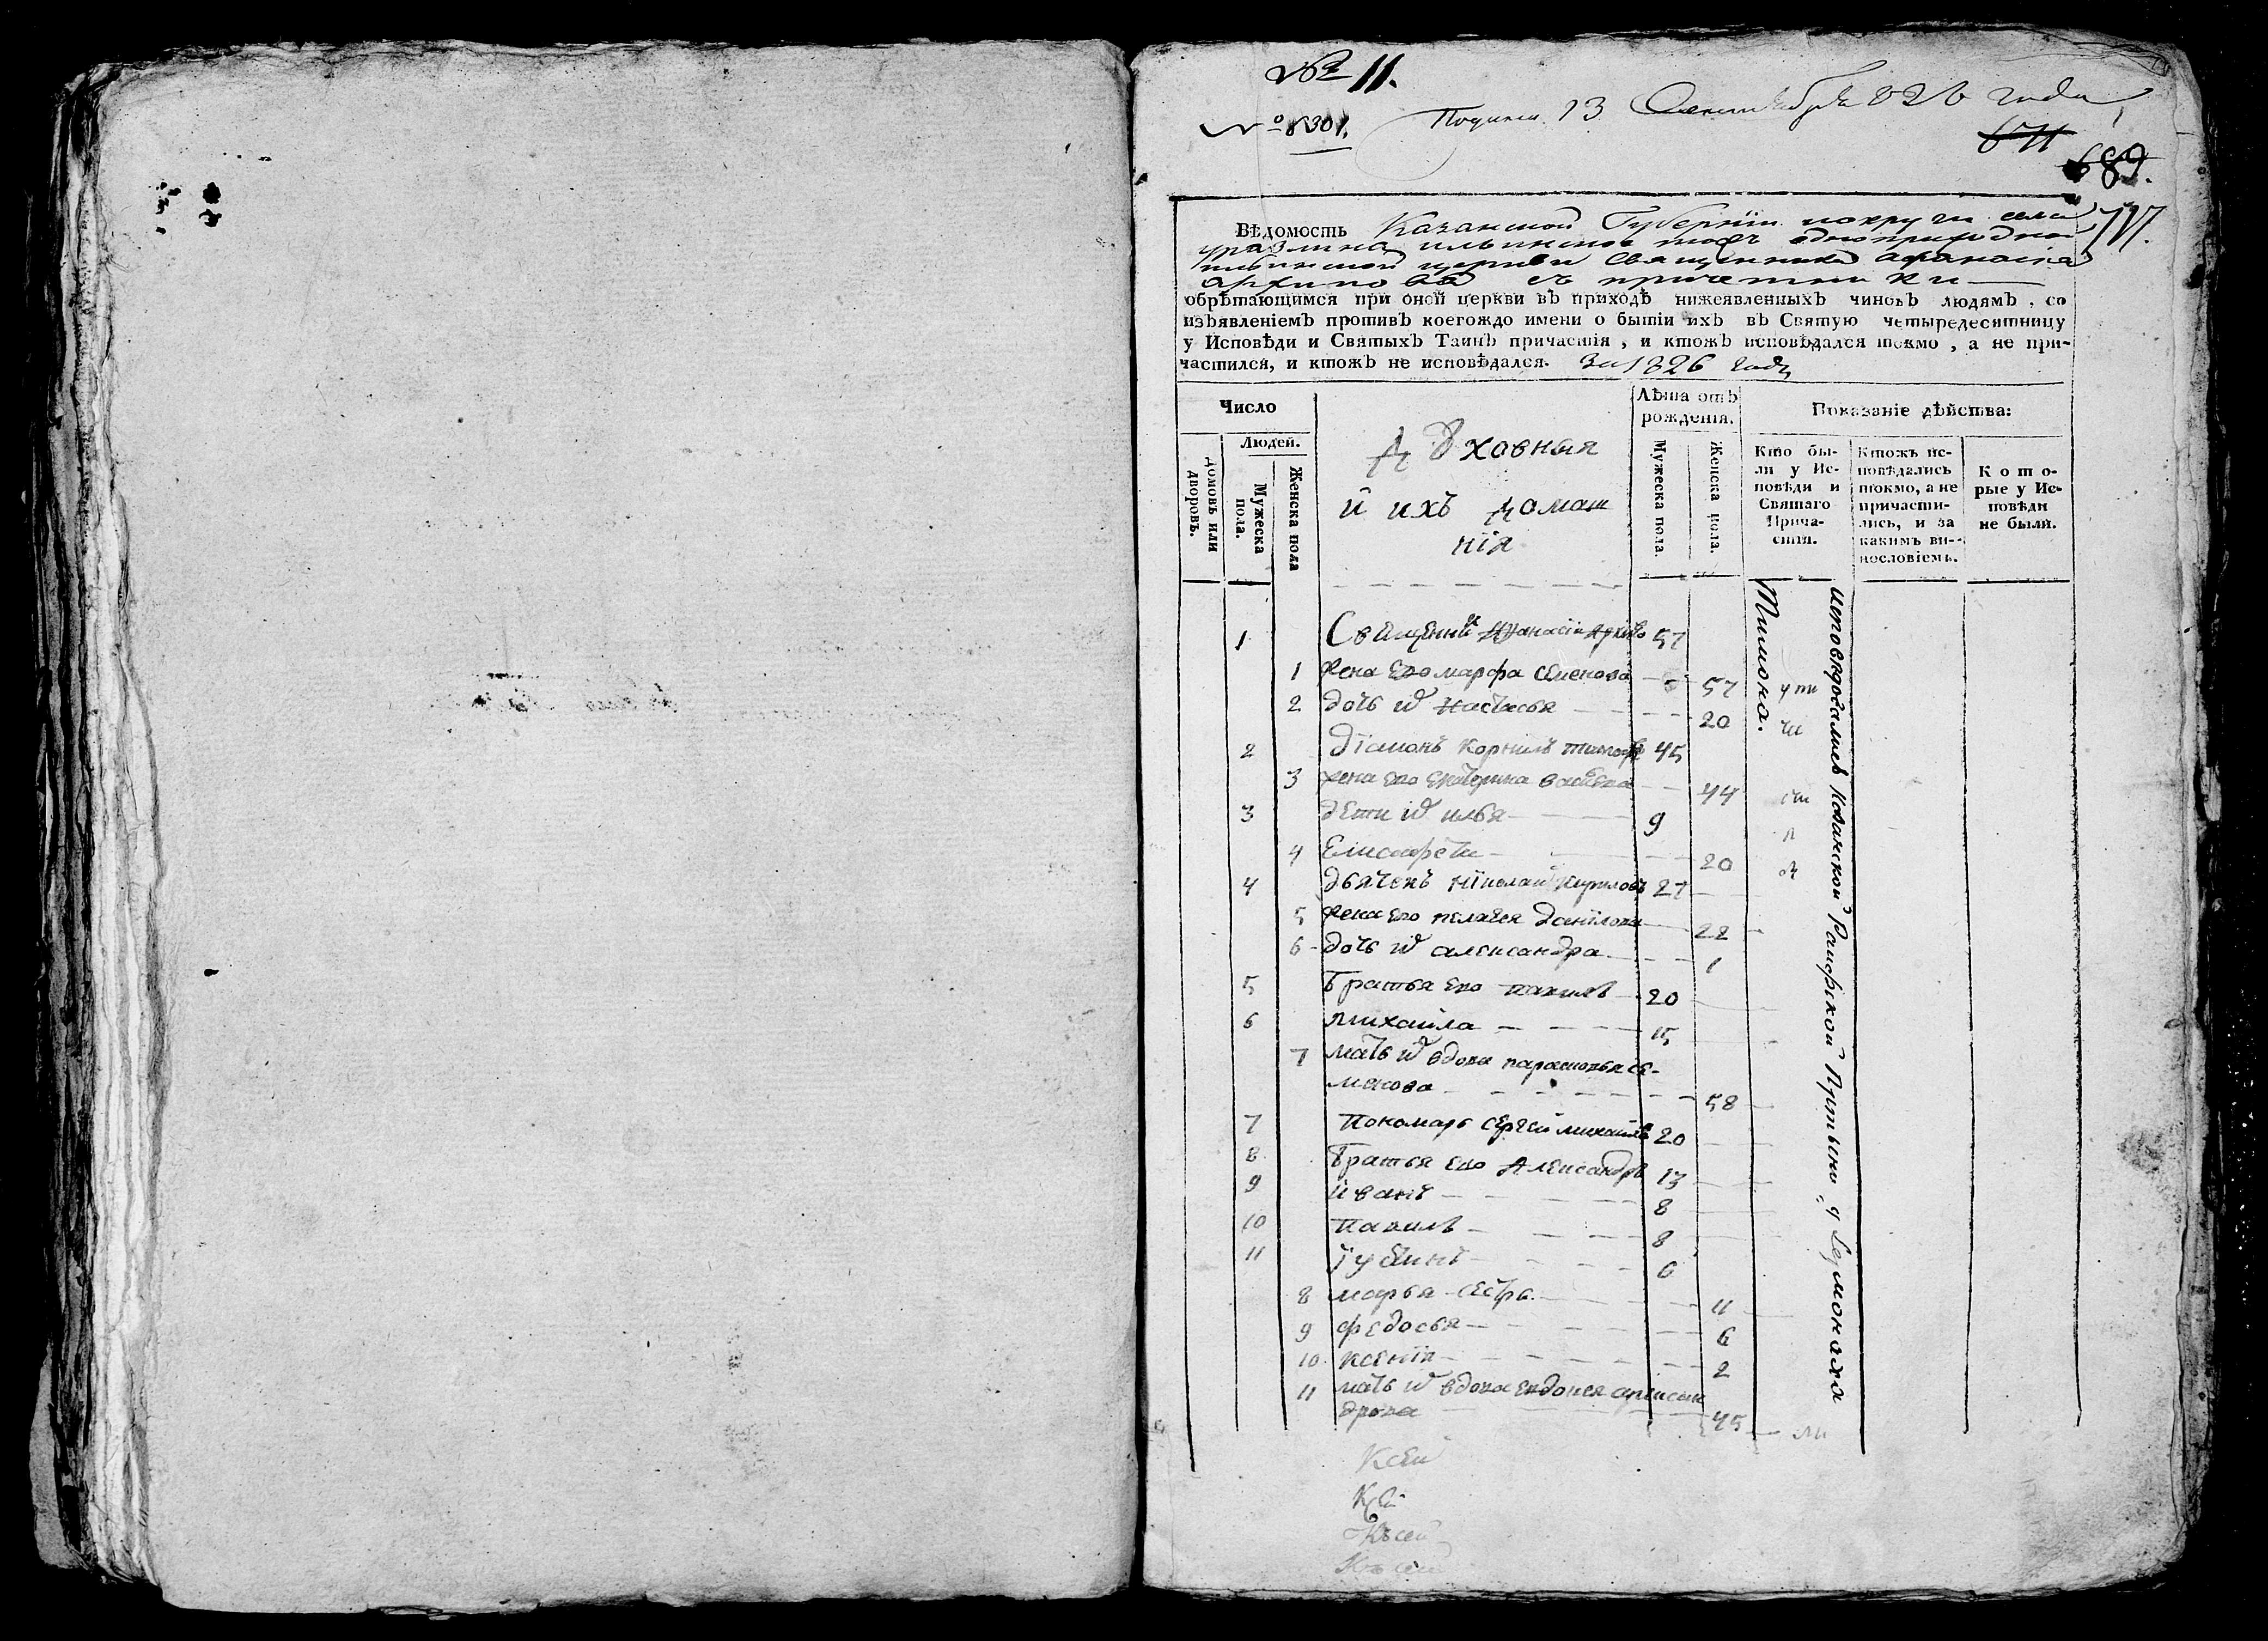 № 11.
№ 8301.
13 Сентября 826 года
671
689.
717.
Вѣдомость Казанской Губерніи и округи села
ильинское тожъ
церкви священника афанасія
архипова съ причетники
обрѣтающимся при оной церкви въ приходѣ нижеявленныхъ чиновъ людямъ, со
изъявленіемъ противъ коегождо имени о бытіи ихъ въ Святую четыредесятницу
у Исповѣди и Святыхъ Таинъ причастія, и ктожъ исповѣдался токмо, а не при-
частился, и ктожъ не исповѣдался. За 1826 годъ
Число
Людей.
домовъ или дворовъ.
Мужеска пола.
Женска пола
Дꙋховныя
й ихъ домаш
нія
Лѣта отъ
рожденія.
Мужеска пола.
Женска пола.
Показаніе дѣйства:
Кто бы-
ли у Ис-
повѣди и
Святаго
Прича-
стія.
Ктожъ ис-
повѣдались
токмо, а не
причасти-
лись, и за
какимъ ви-
нословіемъ.
К о т о-
рые у Ис-
повѣди
не были.
1 Священникъ Афанасій Архипо 57
1 жена его марфа семенова 57
2 дочь их настасья 20
2 Діаконъ Корнилъ 45
3 жена его екатерина 44
3 дети их илья 9
4 Елисафета 20
4 дьячекъ Николай Кириловъ 27
5 жена его пелагея данилова 22
6 дочь их александра 1
5 Братья его павилъ 20
6 михайла 15
7 мать их вдова парасковья се-
менова 58
7 Пономарь сергей михайловъ 20
8 Братья его Александръ 13
9 иванъ 8
10 павилъ 8
11 Іустинъ 6
8 марья сестра 11
9 федосья 6
10 ксенія 2
11 мать их вдова евдокея алексан
дрова 45
исповѣдовались Казанской Раифской Пустыни у Іеромонаха
Тихона.